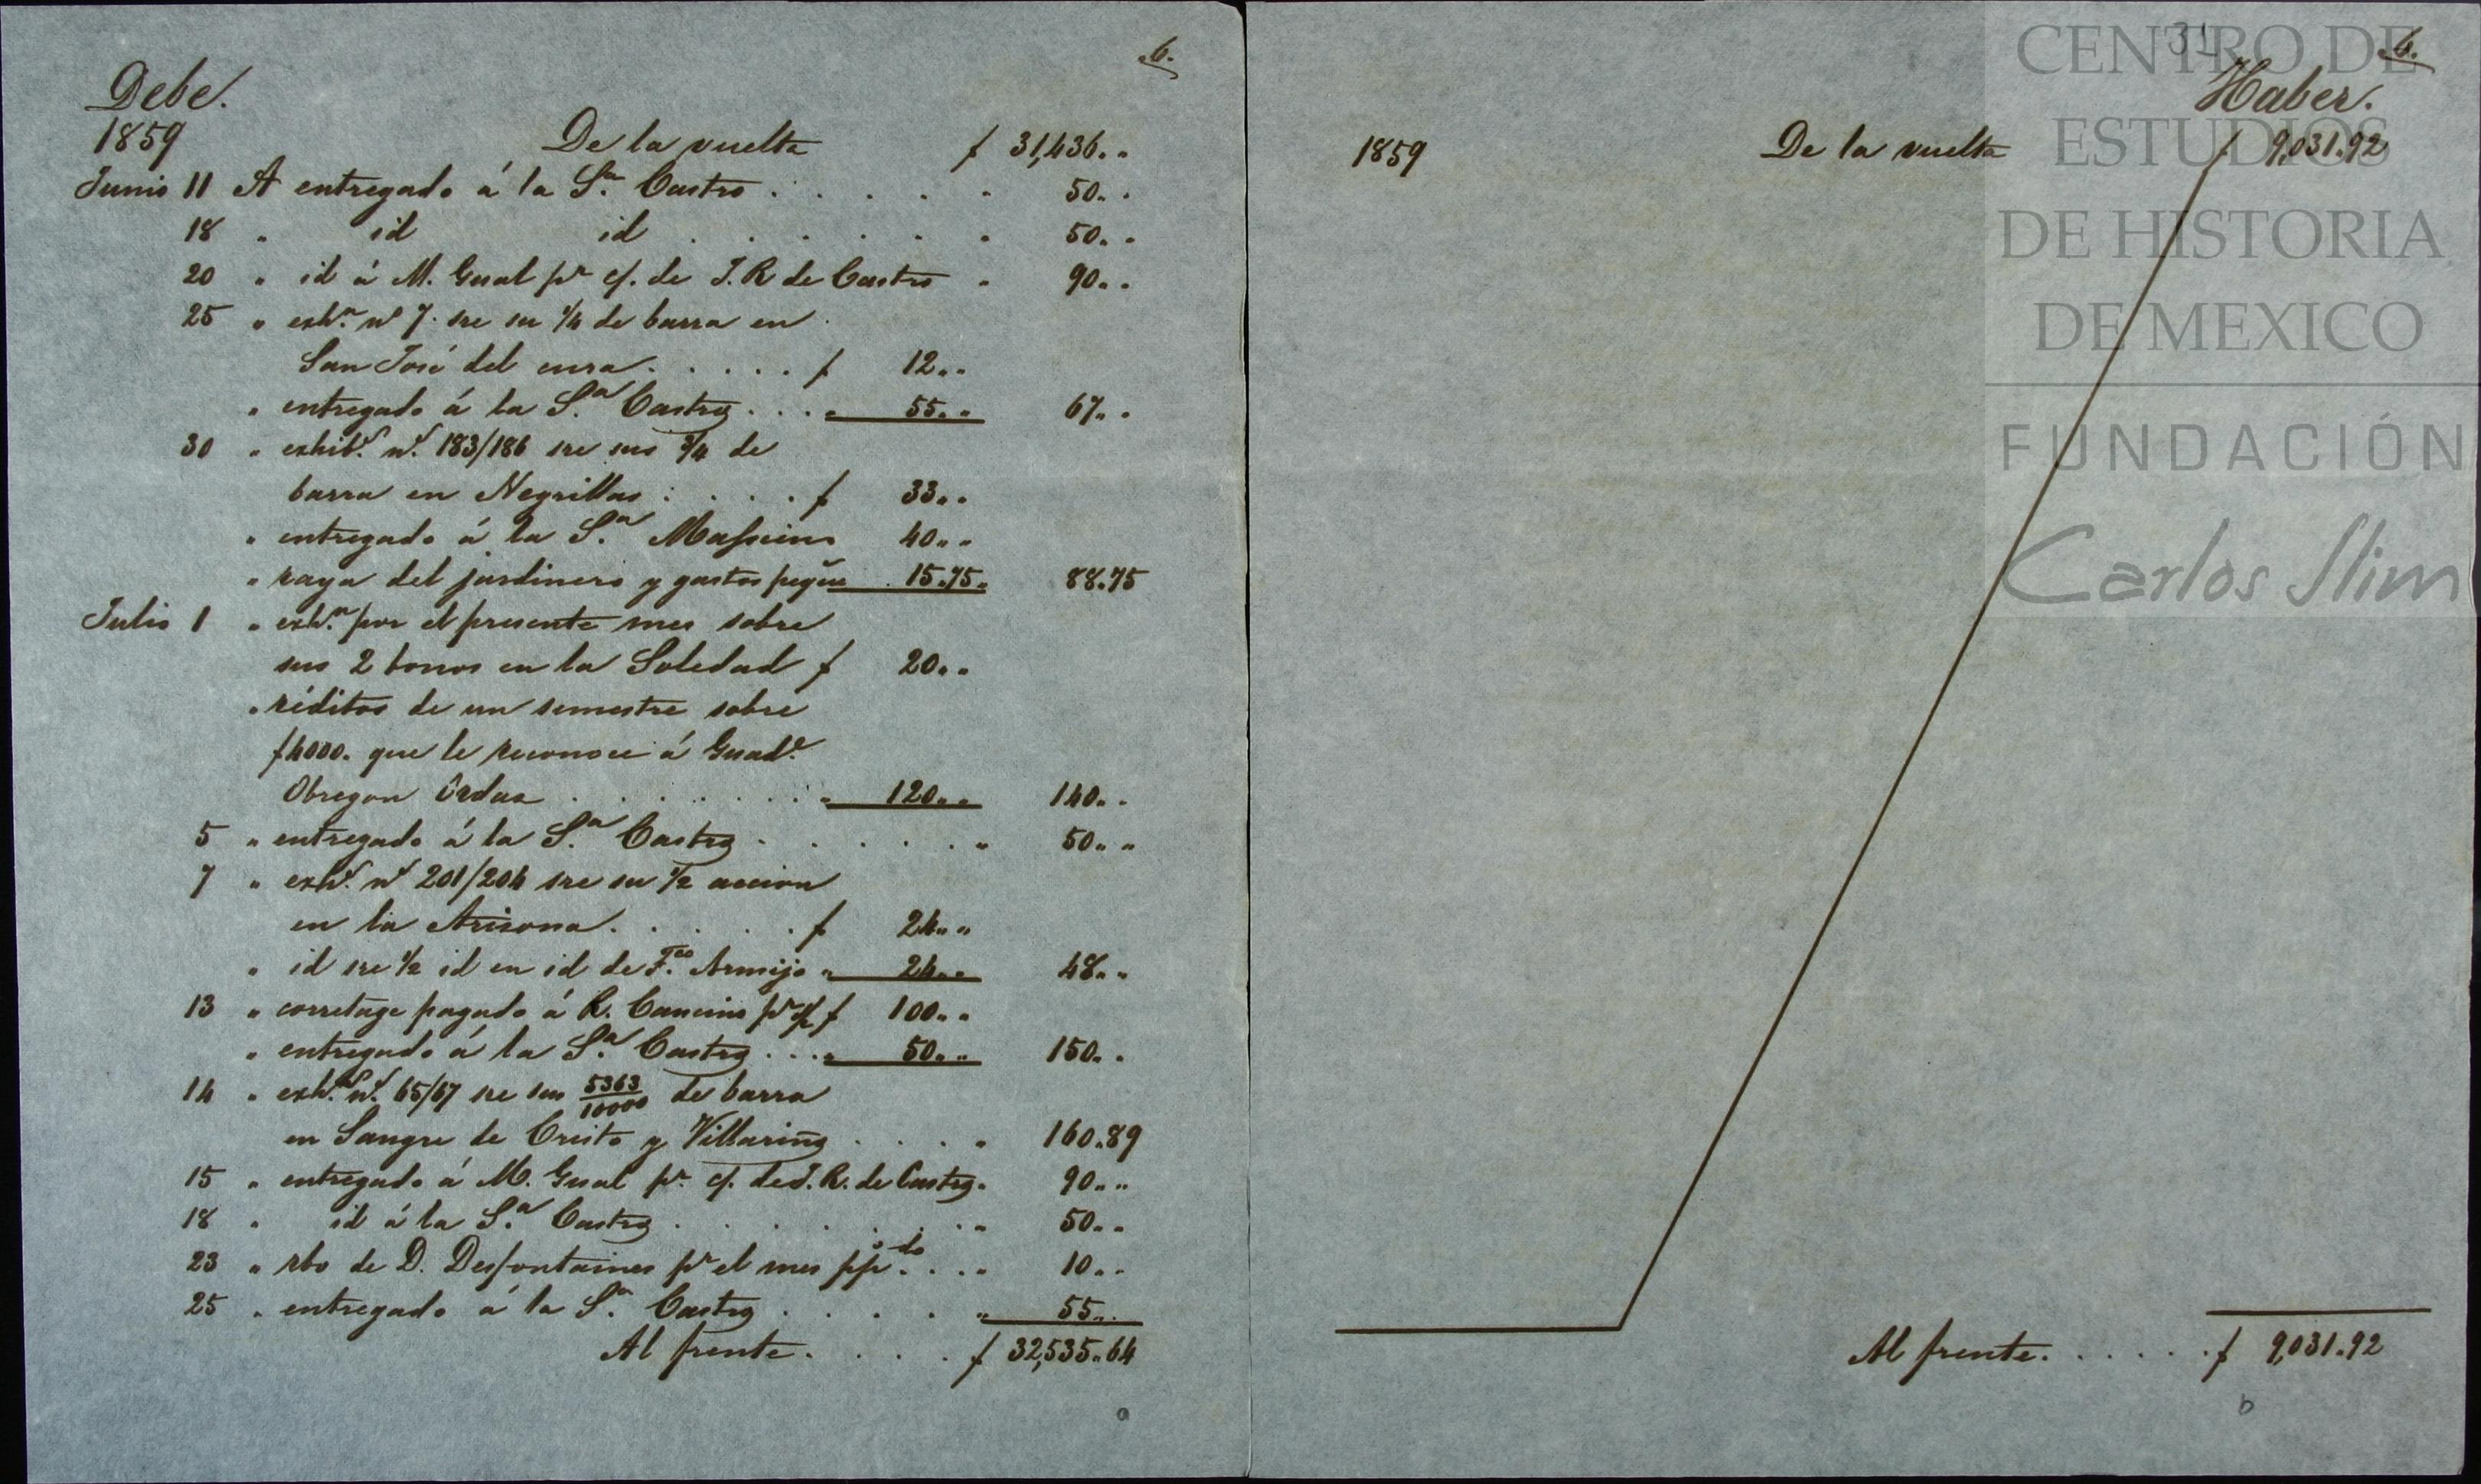 6.
Debe.
1859 De la vuelta $ 31,436..
Junio 11 A entregado á la S.ra Castro . . . . . 50..
18 " id id . . . . . . 50..
20 " id á M. Gual pr c/. de J. R de Castro " 90..
25 " exh.n nº 7. sre su 1/4 de barra en
San José del cura . . . . . $ 12..
" entregado á la S.a Castro . . . " 55.. 67..
30 " exhib.s n.s 183/186 sre sus 3/4 de
barra en Negrillas . . . . $ 33..
" entregado á la S.a 40..
" raya del jardinero y gastos peqūs 15.75. 88.75
Julio 1 " exh.n por el presente mes sobre
sus 2 bonos en la Soledad $ 20..
" réditos de un semestre sobre
$4000. que le reconoce á Guad.e
Obregon Ordaz . . . . . . . " 120.. 140..
5 " entregado á la S.a Castro . . . . . . " 50..
7 " exh.s n.s 201/204 sre su 1/2 accion
en la Arizona . . . . . $ 24..
" id sre 1/2 id en id de F.co Armijo " 24.. 48..
13 " corretage pagado á R. Cancino pr $ 100..
" entregado á la S.a Castro . . . " 50.. 150..
14 " exh.s n.s 65/67 sre sus 5363/10000 de barra
en Sangre de Cristo y Villarino . . . . " 160.89
15 " entregado á M. Gual pr. c/. de J. R. de Castro. 90..
18 " id á la S.a Castro . . . . . . . " 50..
23 " rbo de D. Desfontaines pr el mes pp.º do . . . " 10..
25 " entregado á la S.a Castro . . . . . " 55..
Al frente . . . . $ 32,535.64
a
31
6.
Haber.
1859 De la vuelta $ 9,031.92
Al frente. . . . . . $ 9,031.92
b
CENTRO DE
ESTUDIOS
DE HISTORIA
DE MEXICO
FUNDACIÓN
Carlos Slim